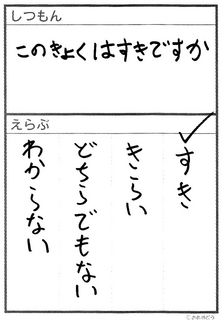 しつもん
このきょくはすきですか
えらぶ
すき
きらい
どちらでもない
わからない